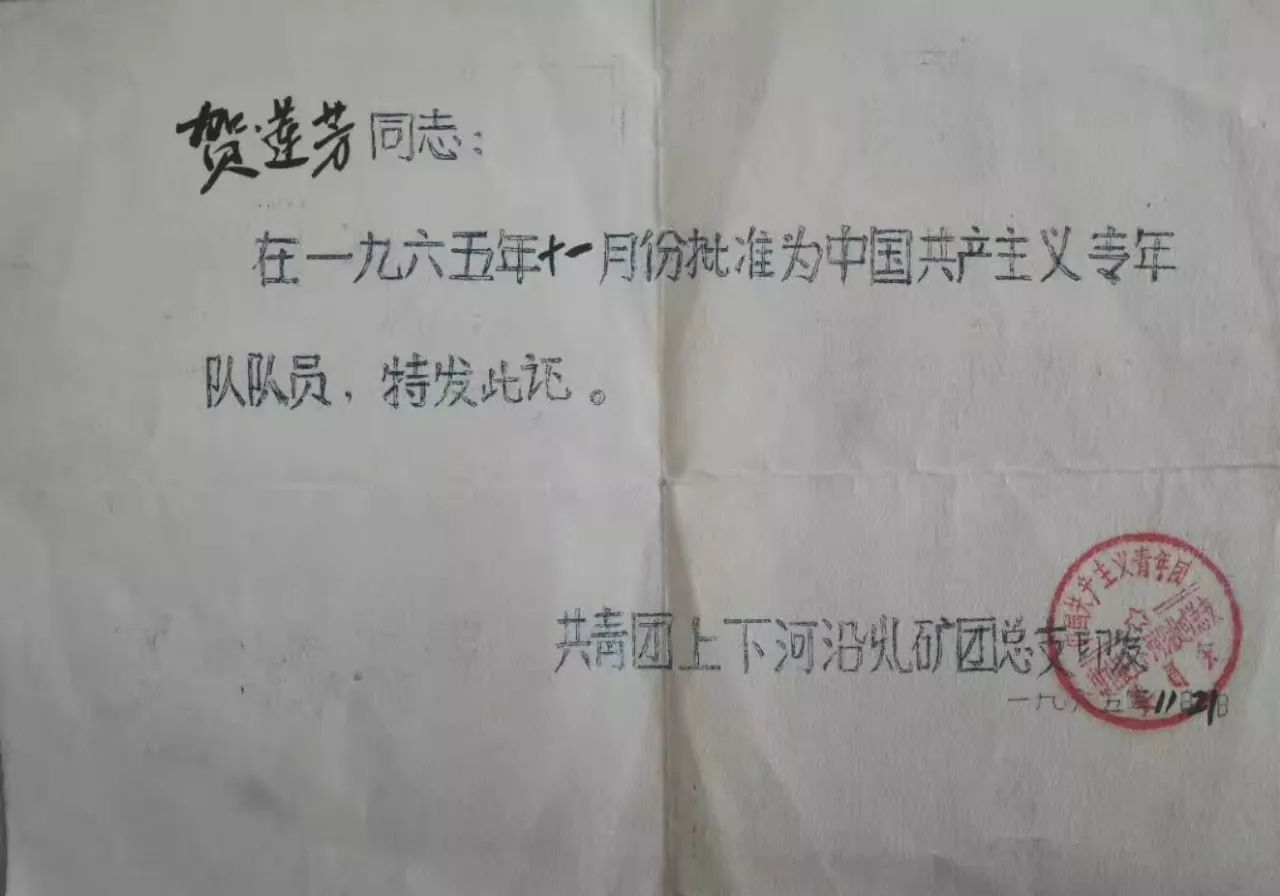 贺莲芳同志：
在一九六五年十一月份批准为中国共产主义青年
队队员，特发此证。
共青团上下河沿煤矿团总支印发
一九六五年11月21日
中国共产主义青年团
委员会